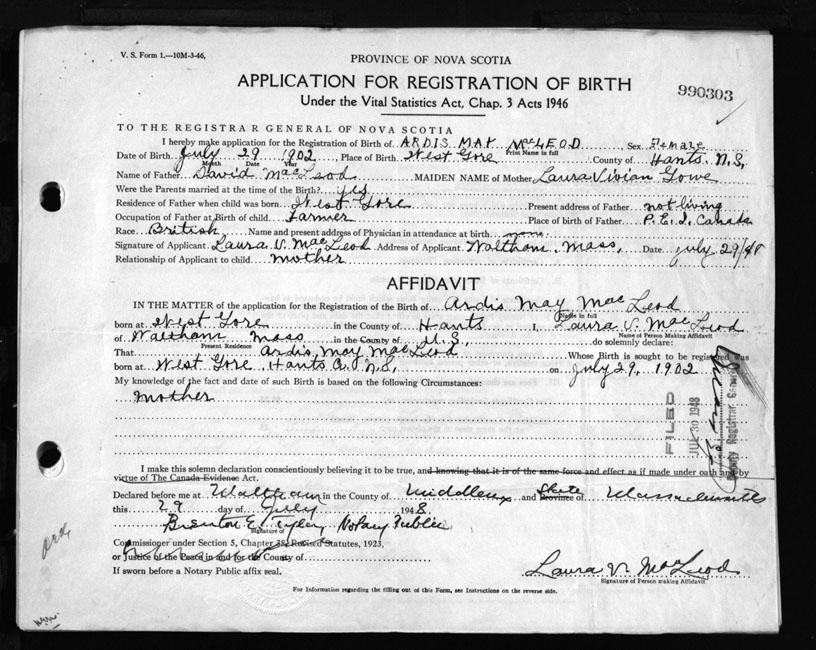 V. S. Form 1.---10M-3-46.
PROVINCE OF NOVA SCOTIA
APPLICATION FOR REGISTRATION OF BIRTH
Under the Vital Statistics Act, Chap. 3 Acts 1946
990303
TO THE REGISTRAR GENERAL OF NOVA SCOTIA
I hereby make application for the Registration of Birth of ARDIS MAY MacLEOD Sex Female
Print Name in full
Date of Birth July 29 1902 Place of Birth West Gore County of Hants. N.S.
Month Date Year
Name of Father David MacLeod MAIDEN NAME of Mother Laura Vivian Gowe
Were the Parents married at the time of the Birth? yes
Residence of Father when child was born West Gore Present address of Father not living
Occupation of Father at Birth of child Farmer Place of birth of Father P.E.I. Canada
Race British Name and present address of Physician in attendance at birth none.
Signature of Applicant Laura V. MacLeod Address of Applicant Waltham. Mass. Date July 29/48
Relationship of Applicant to child mother
AFFIDAVIT
IN THE MATTER of the application for the Registration of the Birth of Ardis May MacLeod
Name in full
born at West Gore in the County of Hants I, Laura V. MacLeod
Name of Person Making Affidavit
of Waltham Mass in the County of U.S. do solemnly declare:
Present Residence
That Ardis May MacLeod Whose Birth is sought to be registered was
born at West Gore Hants Co. N.S. on July 29, 1902
My knowledge of the fact and date of such Birth is based on the following Circumstances:
mother
FILED
JUL 30 1948
Deputy Registrar General
I make this solemn declaration conscientiously believing it to be true, and knowing that it is of the same force and effect as if made under oath and by
virtue of The Canada Evidence Act.
Declared before me at Waltham in the County of Middlesex and State Province of Massachusetts
this 29 day of July 1948.
Brenton E. Tyler Notary Public
Signature of
Commissioner under Section 5, Chapter 38, Revised Statutes, 1923,
or Justice of the Peace in and for the County of
If sworn before a Notary Public affix seal.
Laura V. MacLeod
Signature of Person making Affidavit
For Information regarding the filling out of this Form, see Instructions on the reverse side.